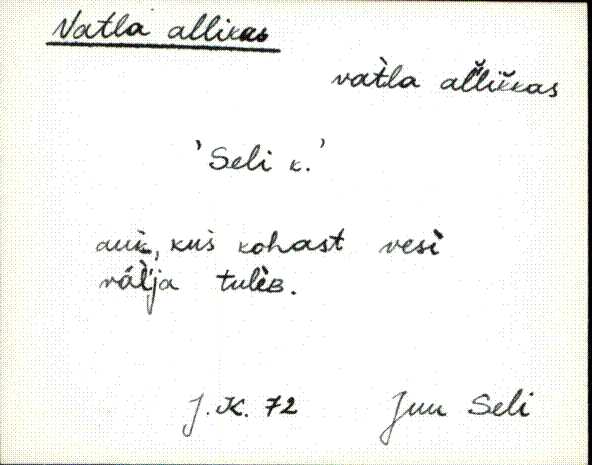 Vatla allikas
vàtla al̆likas
'Seli k.'
auk̀, kus̀ kohast vesì
väl̀'ja tulèB.
J.K. 72 Juu Seli